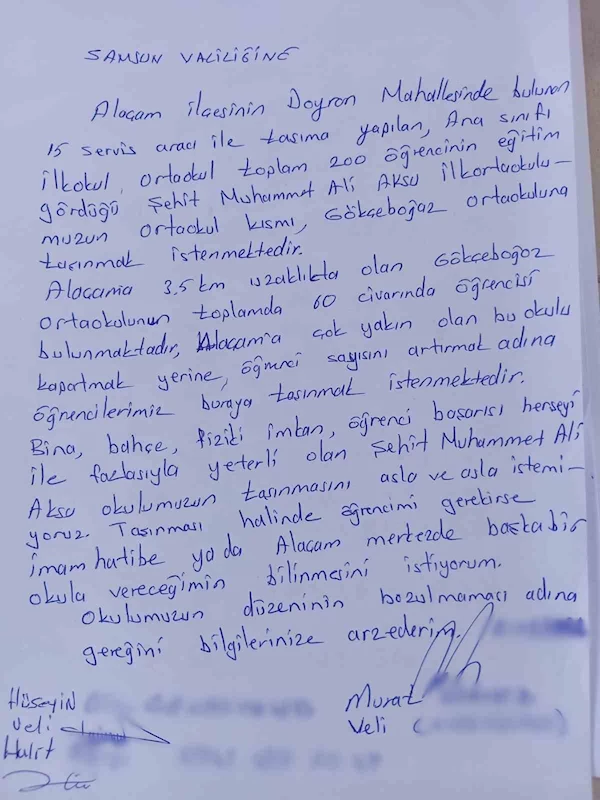 SAMSUN VALİLİĞİNE
Alaçam ilçesinin Doyran Mahallesinde bulunan
15 servis aracı ile taşıma yapılan, Ana sınıfı
ilkokul, ortaokul toplam 200 öğrencinin eğitim
gördüğü Şehit Muhammet Ali Aksu ilkortaokulu-
muzun ortaokul kısmı, Gökçeboğaz ortaokuluna
taşınmak istenmektedir.
Alaçama 3.5 km uzaklıkta olan Gökçeboğaz
ortaokulunun toplamda 60 civarında öğrencisi
bulunmaktadır, Alaçam'a çok yakın olan bu okulu
kapatmak yerine, öğrenci sayısını artırmak adına
öğrencilerimiz buraya taşınmak istenmektedir.
Bina, bahçe, fiziki imkan, öğrenci başarısı herşeyi
ile fazlasıyla yeterli olan Şehit Muhammet Ali
Aksu okulumuzun taşınmasını asla ve asla istemi-
yoruz. Taşınması halinde öğrencimi gerekirse
imam hatibe ya da Alaçam merkezde başka bir
okula vereceğimin bilinmesini istiyorum.
Okulumuzun düzeninin bozulmaması adına
gereğini bilgilerinize arzederim.
Hüseyin
Veli
Halit
Murat
Veli